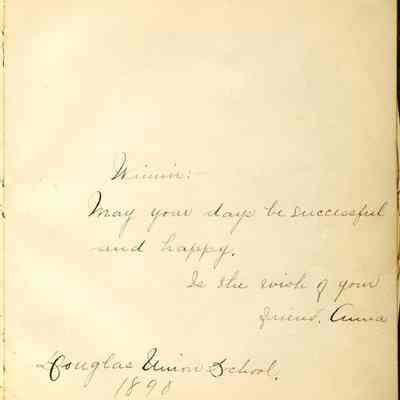 Winnie:-
May your days be successful
and happy.
Is the wish of your
friend. Anna
Douglas Union School.
1890